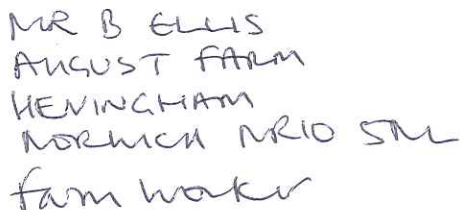 MR B ELLIS
AUGUST FARM
HEVINGHAM
NORWICH NR10 5NL
farm worker